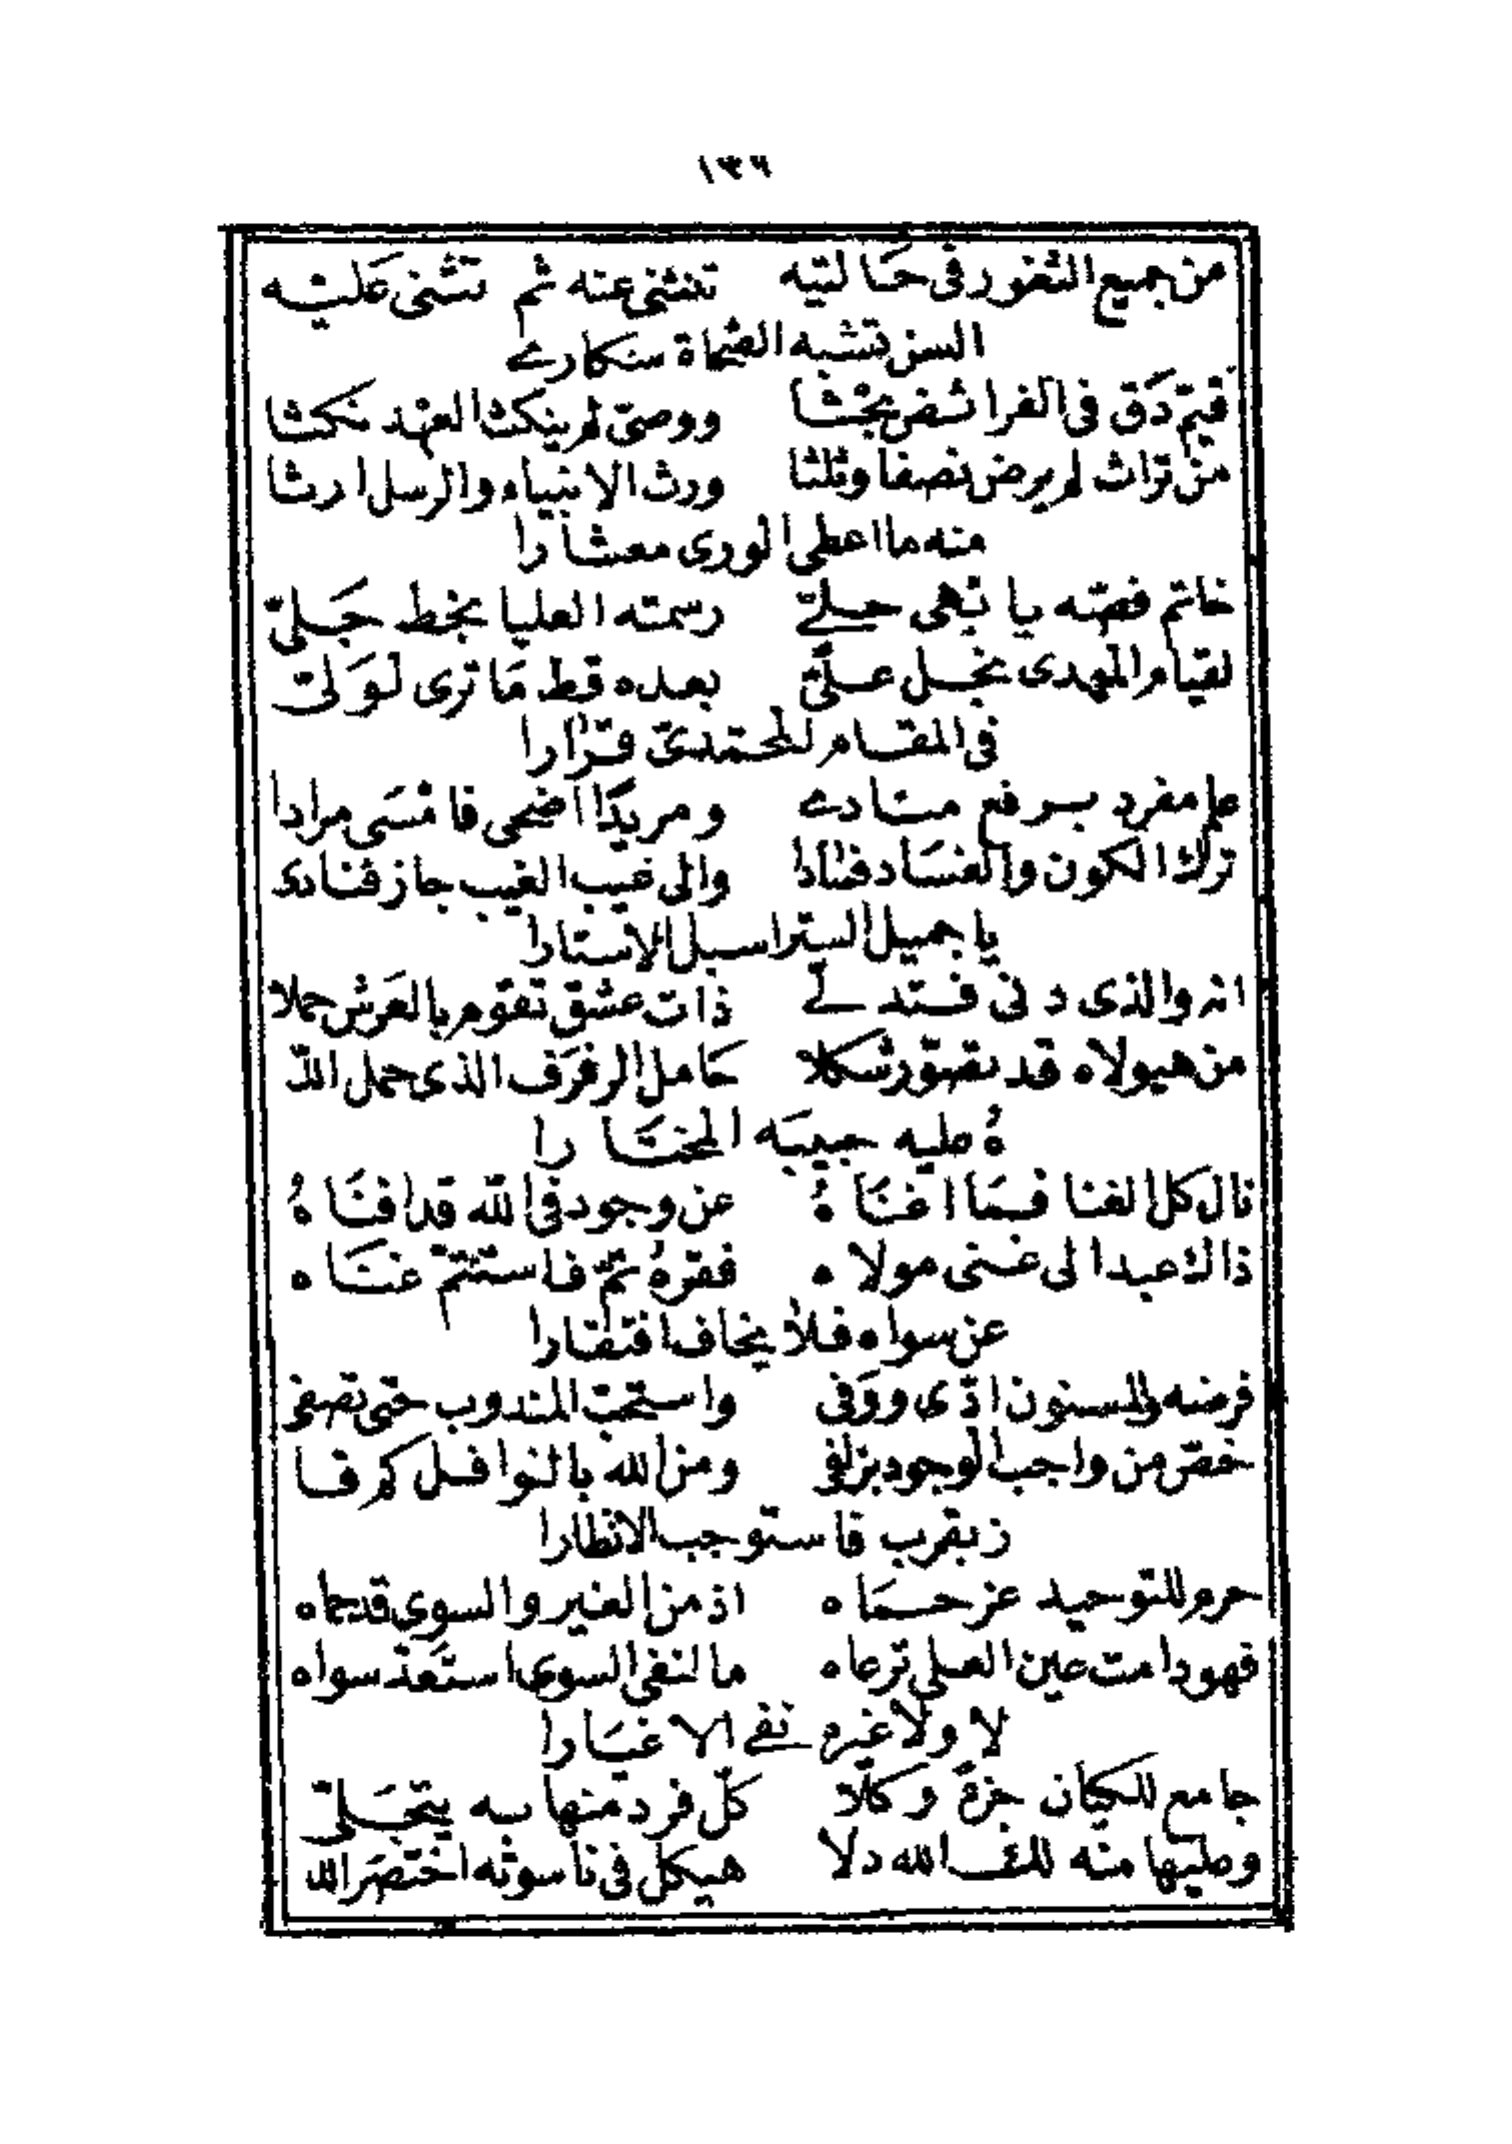 ١٣٦
من جميع الثغور في حَالتيه تنثنى عنه ثم تثنى عَليه
السن تشبه الصُحاة سكارے
قيّم دَق في الفرائض بحْثا ووصىّ لم ينكث العهْد نكثا
من تراث لم يرض نصفا وثلثا ورث الانبياء والرسل ارثا
منه ما اعطى الورى معشارا
خاتم فصّه يا نهى حلّے رسمته العليا بخط جَلىّ
لقيام المهدى بنجل علىّ بعده قط مَا ترى لوَلىّ
في المقام المحمّدىّ قرارا
علم مفرد برفع منادے ومريدًا اضحى فامْسَى مرادا
ترك الكون والفسَاد فنادا والى غيب الغيب جاز فنادى
يا جميل الستر اسبل الاستارا
انه والذى دنى فتدلّے ذات عشق تقوم بالعَرش حملا
من هيولاه قد تصَوّر شكلا حَامل الرفرَف الذى حمل اللّـ
ـهُ عليه حبيبَه المختَارا
نال كل الغنا فمَا اغنَاهُ عن وجود في اللّه قد افنَاهُ
ذاك عبد الى غنى مولاه فقرهُ تمّ فاستتمّ غنَاه
عن سواه فلا يخاف افتقارا
فرضه والمسنون ادّى ووَفى واستحبّ المندوب حتى تصفى
خصّ من واجب الوجود بزلفى ومن الله بالنوافل كم فا
ز بقرب فاستوجب الانظارا
حرم للتوحيد عز حمَاه اذ من الغير والسوى قد حماه
فهو دامت عين العلى ترعاه ما لنفى السوى استَعدّ سواه
لا ولا غيره نفے الاغيَارا
جامع للكيان جزءً وكلّا كلّ فرد منها به يتجَلىّ
وعليها منه للف الله دلا هيكل في ناسوته اختصَر الله